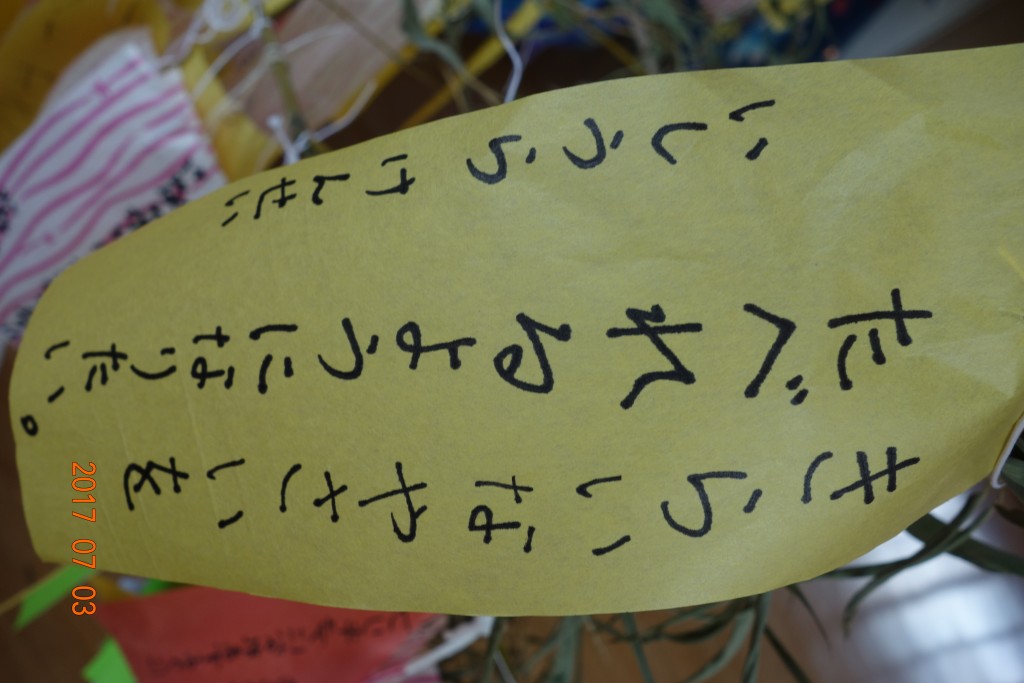 きらいなやさいを
たべれるようになりたい。
いしうら けんせい
2017 07 03